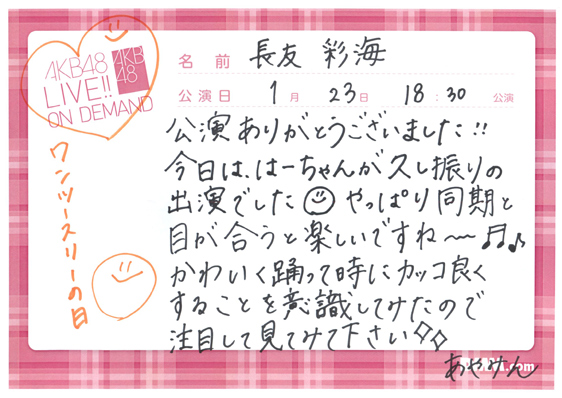 AKB48
LIVE!!
ON DEMAND
AKB
48
名前 長友 彩海
公演日 1月 23日 18:30 公演
公演ありがとうございました!!
今日は、はーちゃんが久し振りの
出演でした やっぱり同期と
目が合うと楽しいですね〜♬♪
かわいく踊って時にカッコ良く
することを意識してみたので
注目して見てみて下さい
あやみん
.com
ワンツースリーの日